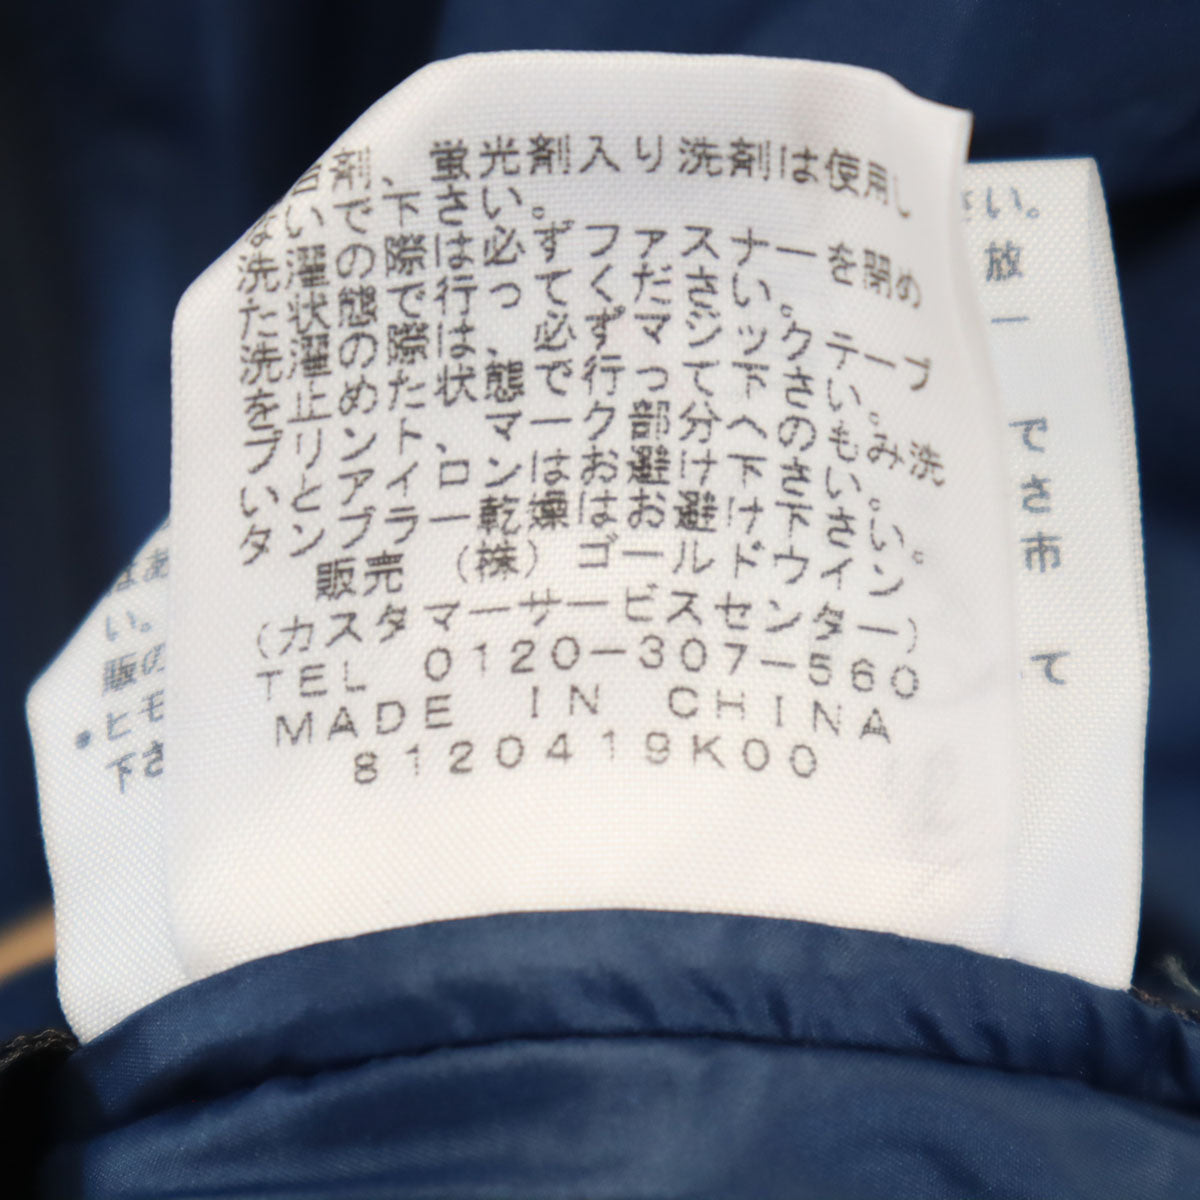 白剤、蛍光剤入り洗剤は使用し
ないで下さい。
洗濯の際は必ずファスナーを閉め
た状態で行ってください。
洗濯の際は、必ずマジックテープ
を止めた状態で行って下さい。
プリント、マーク部分へのもみ洗
いとアイロンはお避け下さい。
タンブラー乾燥はお避け下さい。
販売 (株) ゴールドウイン
(カスタマーサービスセンター)
TEL 0120-307-560
MADE IN CHINA
8120419K00
さい。
放
一
でさ
市
て
あ
は
い。
販の
・ヒモ
下さ